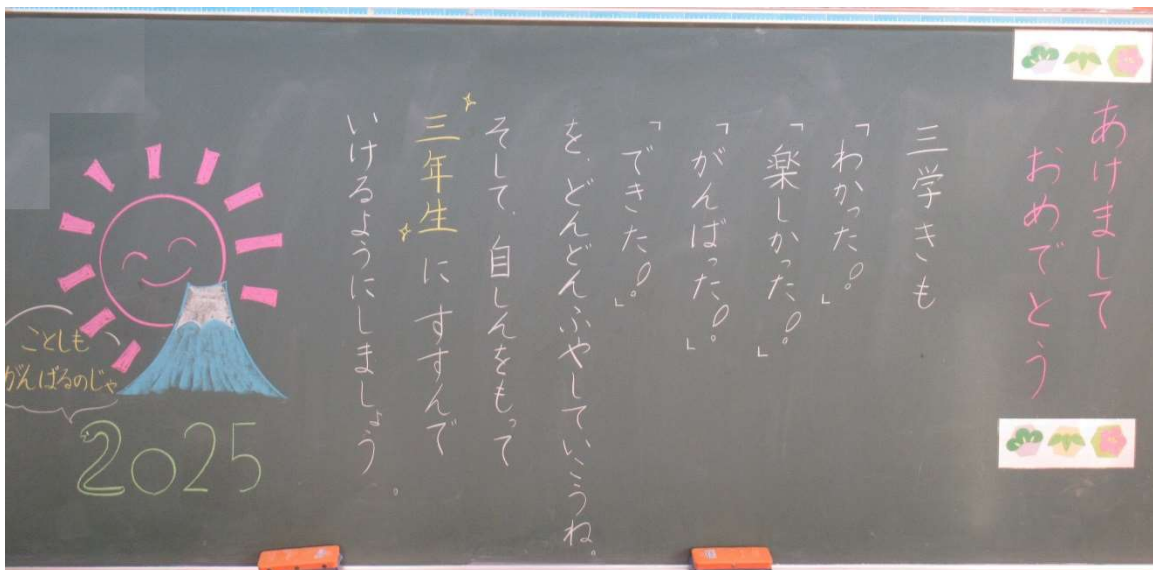 あけまして
おめでとう
三学きも
「わかった！」
「楽しかった！」
「がんばった！」
「できた！」
を、どんどんふやしていこうね。
そして、自しんをもって
三年生にすすんで
いけるようにしましょう。
ことしも
がんばるのじゃ
2025